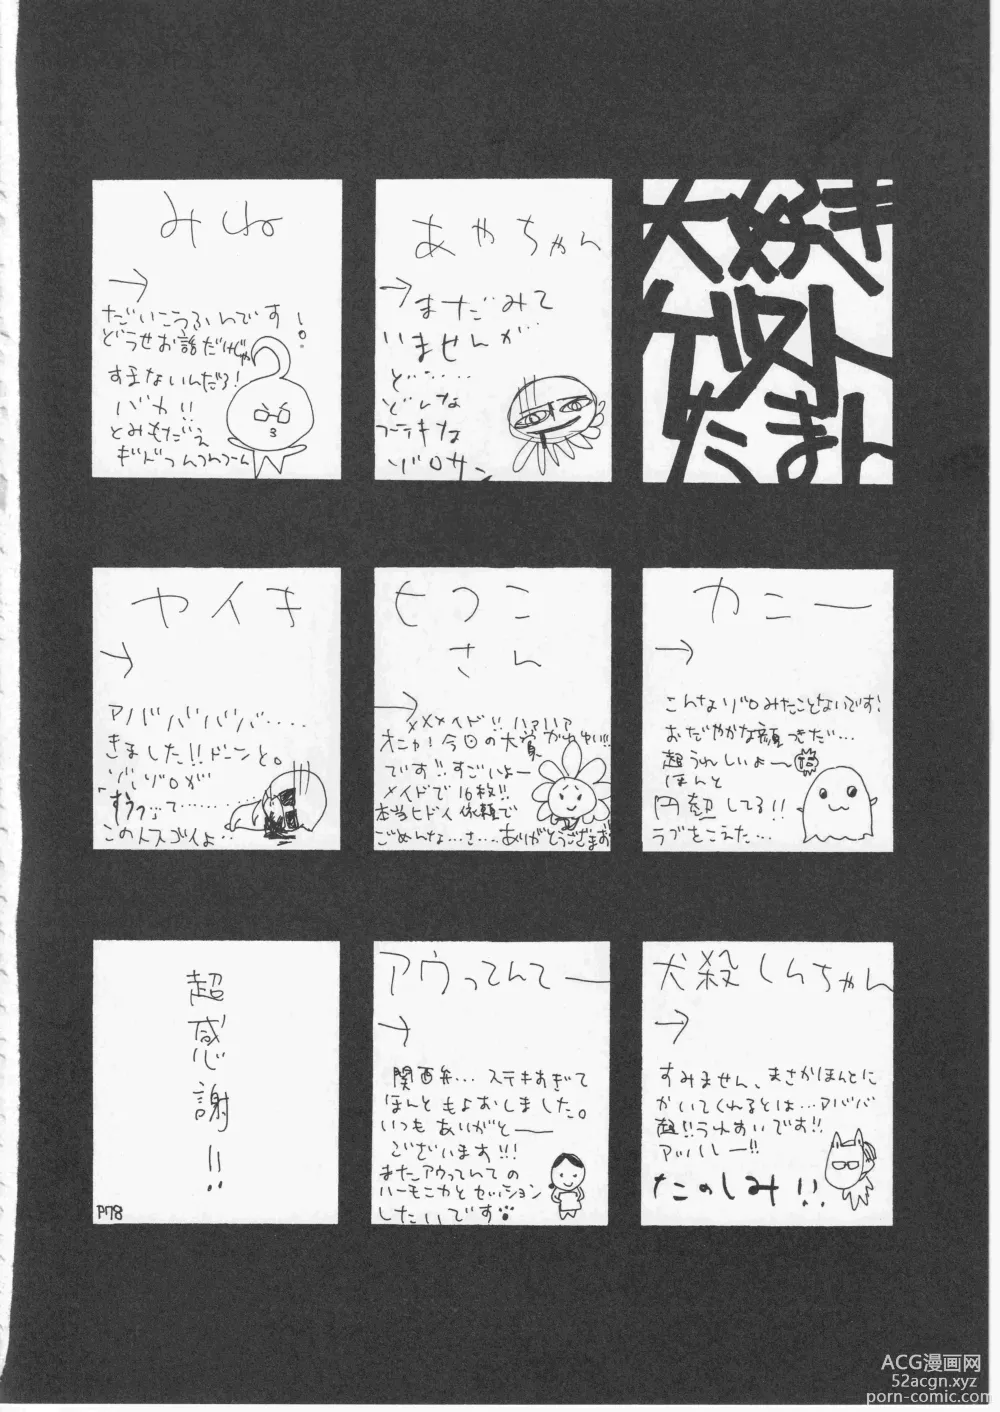 大好き
ゲスト
たまん
あやちゃん
→
まだみて
いませんが…
ど……
どんな
ステキな
ゾロサン
みね
→
だいこうふんです!
どうせお話だけじゃ
すまないんだろ!
バカ!!
とみもだえ
カニー
→
こんなゾロみたことないです!
おだやかな顔つきだ…
超うれしいよー
ほんと
円熟してる!!
ラブをこえた…
ヒフミ
さん
→
メメメイド!!ハァハァ
です!!すごいよー
メイドで16枚!!
本当ヒドイ依頼で
ごめんな…さ…ありがとうござまお
ヤイキ
→
アババババ....
きました!!ドーンと。
ゾ、ゾロが
「すうっ」て……
この人スゴイよ…
犬殺しんちゃん
→
すみません、まさかほんとに
かいてくれるとは…アババ
超!!うれすいです!!
アッハレー!!
たのしみ!!
アウってんてー
→
関西弁…ステキすぎて
ほんともよおしました。
いつもありがとー
ございます!!!
またアウってんての
ハーモニカとセッション
したいです
超感謝!!
P78
ACG漫画网
52acgn.xyz
porn-comic.com